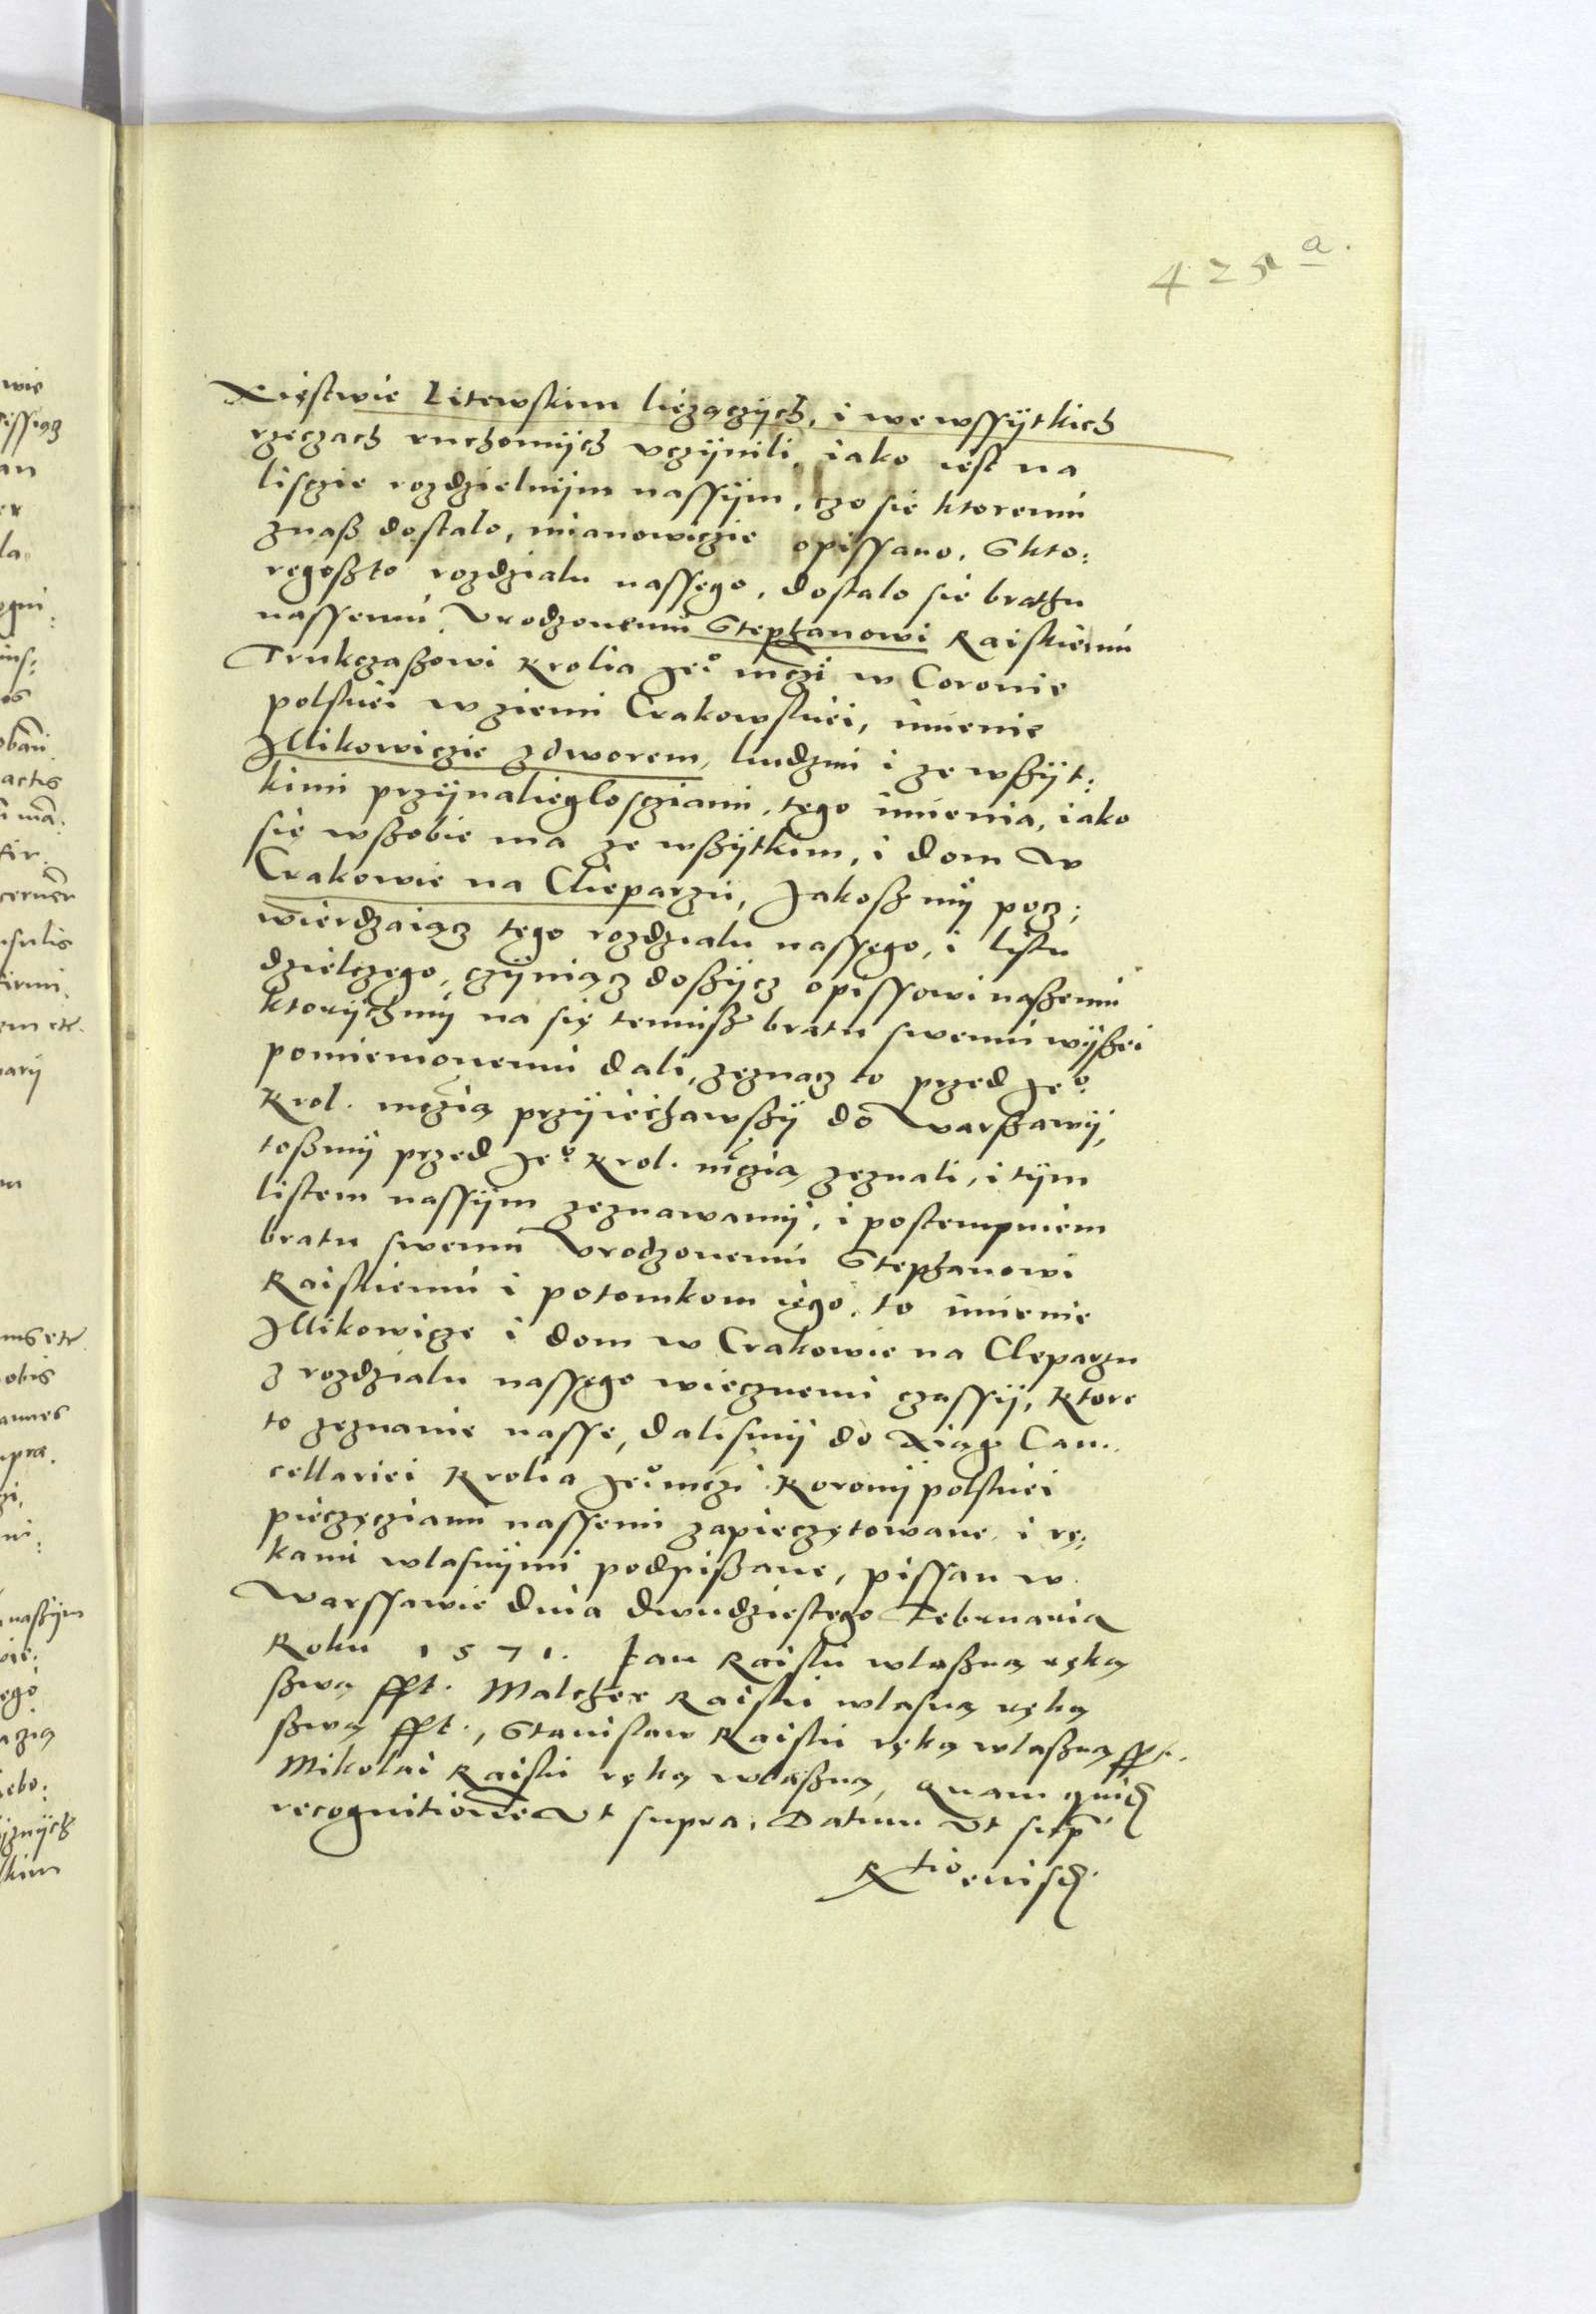 425 a.
Xięstwie Litewskim lieżączÿch, i we wssÿtkich
rzeczach ruchomÿch vczÿnili, iako iest na
lisczie rozdzielnÿm nassÿm, czo sie ktoremu
znaß dostalo, mianowiczie opissano. S kto:
regoßto rozdzialu nassego, dostalo sie brathu
nassemu Vrodzonemu Stephanowi Raiskiemu
Trukczaßowi Krolia Jeo mczi w Coronie
polskiei w ziemi Crakowskiei, imienie
Illikowiczie z dworem, ludzmi i ze wßÿt:
kimi przÿnalieglosciami, tego imienia, iako
się wßobie ma ze wßÿtkim, i dom w
Crakowie na Clieparzu, Jakoß mÿ pocz:
wierdzaiącz tego rozdzialu nassego, i listu
dzielczego, czÿniącz doßÿcz opissowi naßemu
ktorÿchmÿ na się temuß bratu swemu wÿßei
pomienionemu dali, zeznacz to przed Jeo
Krol. mczią przÿiechawßÿ do Warßawÿ,
toßmÿ przed Jeo Krol. mczią zeznali, i tÿm
listem nassÿm zeznawamÿ, i postempuiem
bratu swemu Vrodzonemu Stephanowi
Raiskiemu i potomkom iego, to imienie
Illikowicze i dom w Crakowie na Cleparzu
z rozdzialu nassego wiecznemi czassÿ, Ktore
to zeznanie nasse, dalismÿ do Xiąg Can:
cellariei Krolia Jeo mczi Koronÿ polskiei
pieczęcziami nassemi zapieczętowane i rę:
kami wlasnÿmi podpißane, pissan w
Warssawie dnia dwudziestego Februaria
Roku 1571. Jan Raiski wlaßną ręką
ßwą sst. Malcher Raiski wlasną ręką
ßwą sst., Stanislaw Raiski ręką wlaßną sst.
Mikolai Raiski ręką wlaßną, quam quid
recognitionem Vt supra. Datum Vt sup
Rtio eiusd.